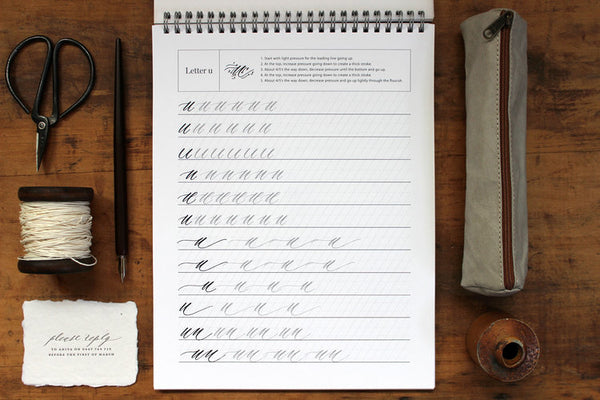 Letter u
1. Start with light pressure for the leading line going up.
2. At the top, increase pressure going down to create a thick stroke.
3. About 4/5's the way down, decrease pressure until the bottom and go up.
4. At the top, increase pressure going down to create a thick stroke.
5. About 4/5's the way down, decrease pressure and go up lightly through the flourish.
u u u u u u
u u u u u u
u u u u u u u
u u u u u u
u u u u u u
u u u u u u u
u u u u
u u u u
u u u u
u u u u
uu uu uu uu uu
uu uu uu uu
please reply
BEFORE THE FIRST OF MARCH